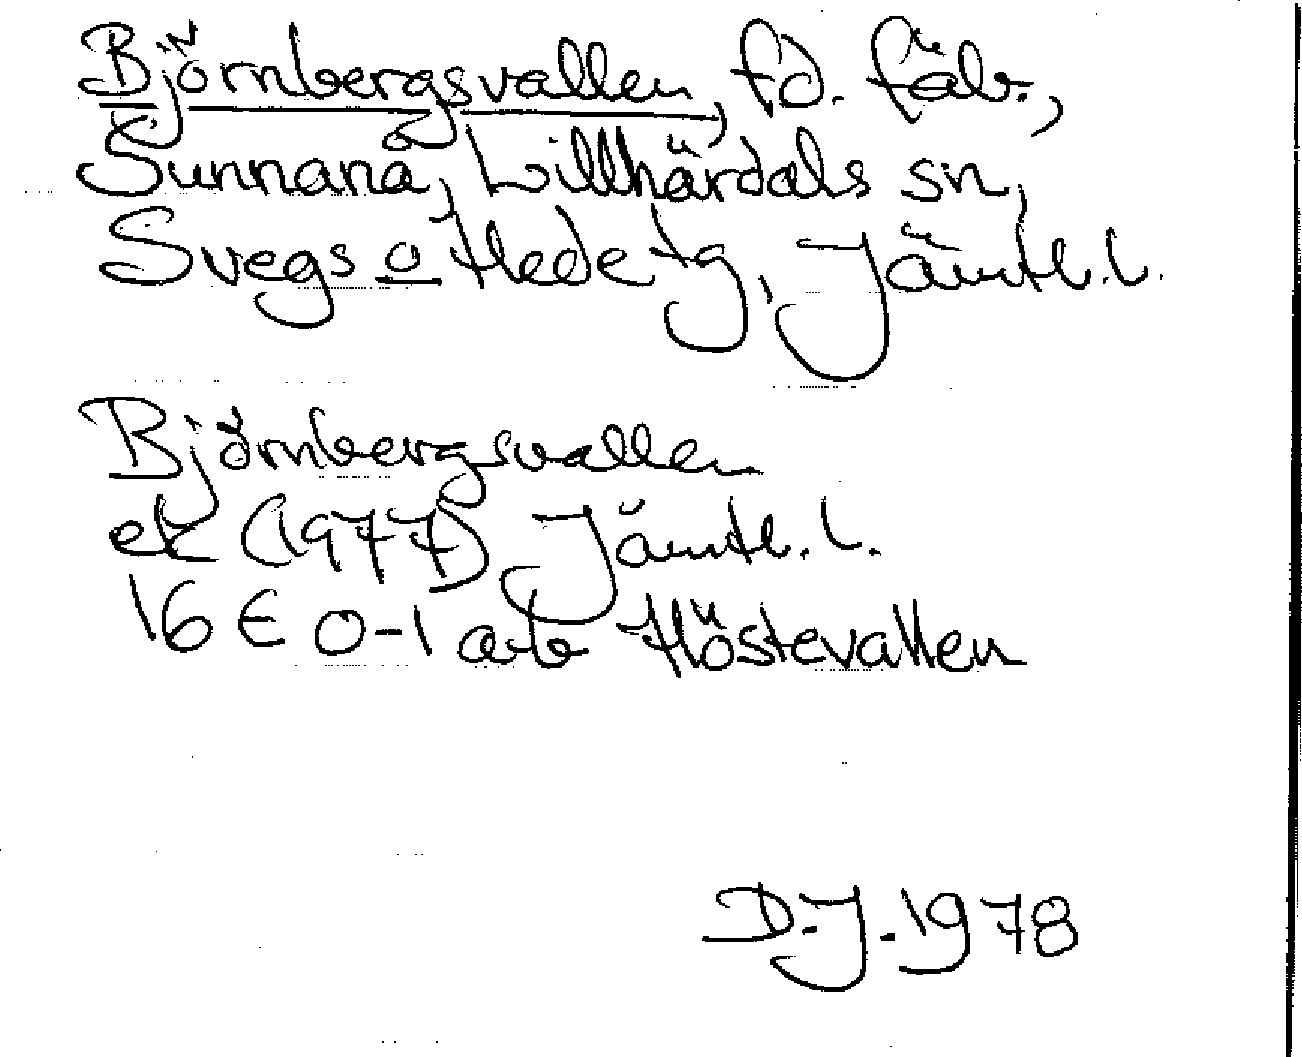 Björnbergsvallen, fd. fäb.,
Sunnanå, Lillhärdals sn,
Svegs o Hede tg, Jämtl. l.
Björnbergsvallen
ek (1977) Jämtl. l.
16 E 0-1 a-b Höstevallen
D.J. 1978